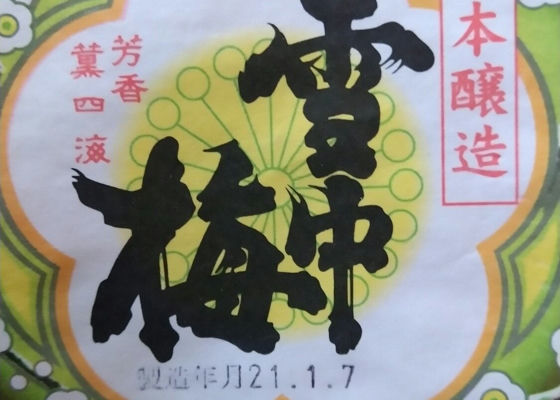 本醸造
雪中
梅
芳香
薫四海
製造年月21.1.7